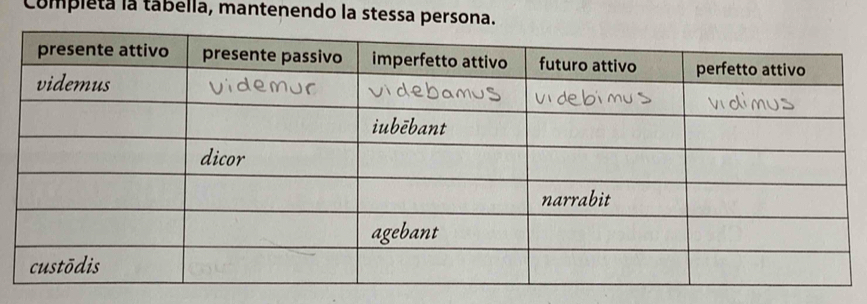 Completa la tabella, mantenendo la stessa persona.
presente attivo presente passivo imperfetto attivo futuro attivo perfetto attivo
videmus videmur videbamus videbimus vidimus
iubēbant
dicor
narrabit
agebant
custōdis